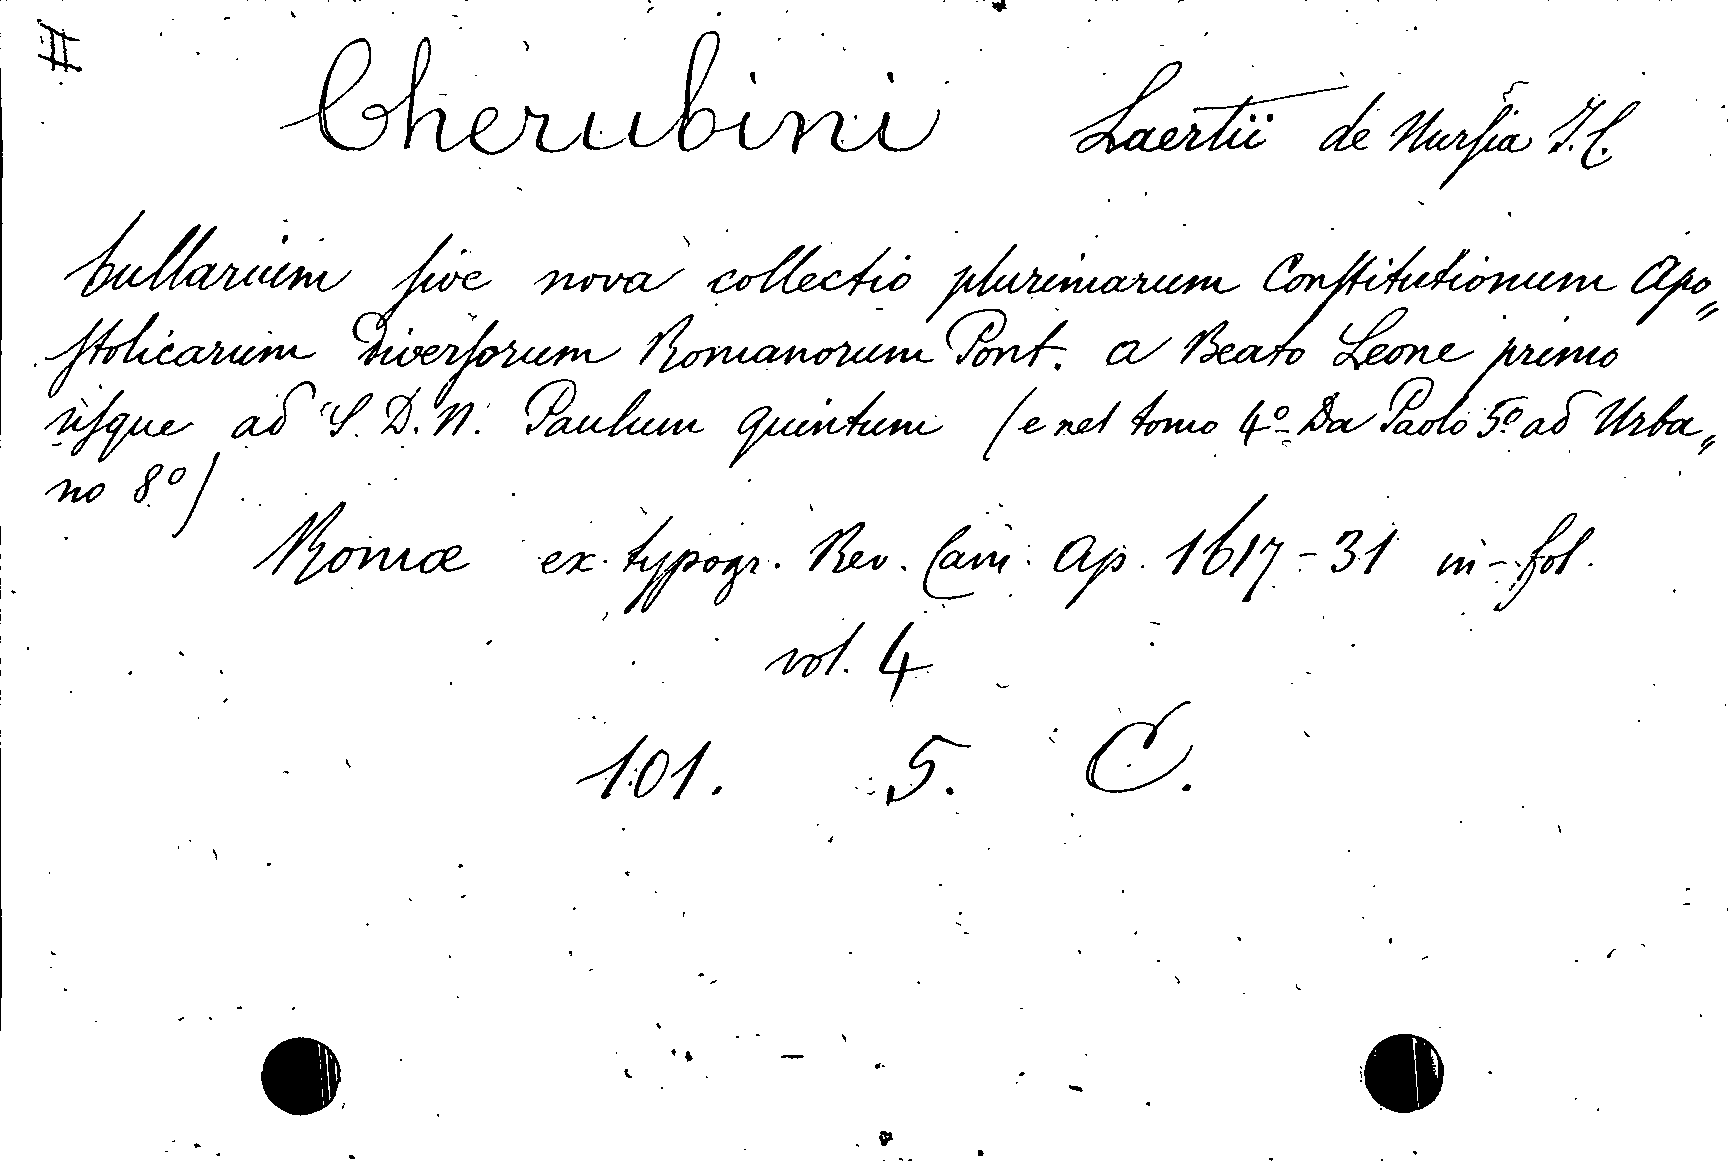 #
Cherubini Laertii de Nursia J.C.
bullarium sive nova collectio plurimarum Constitutionum Apo„
stolicarum Diversorum Romanorum Pont. a Beato Leone primo
usque ad S. D. N. Paulum quintum (e nel tomo 4º Da Paolo 5º ad Urba„
no 8º)
Romæ ex typogr. Rev. Cam. Ap. 1617-31 in-fol.
vol. 4
101. 5. C.